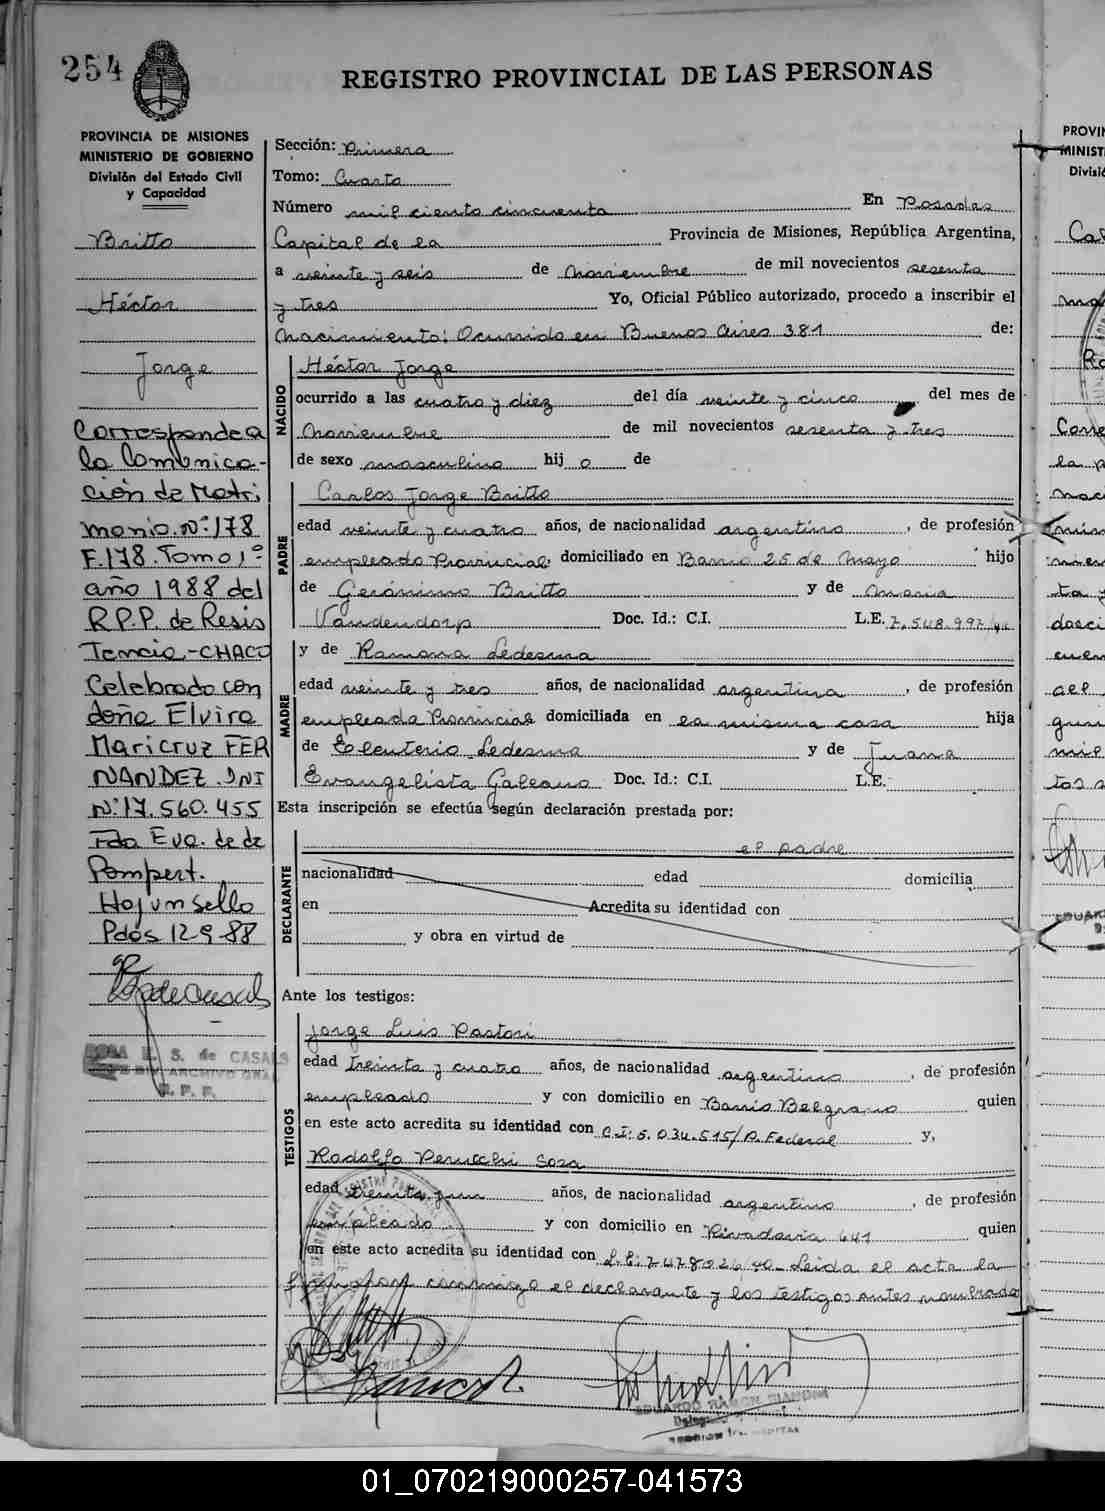 254
REGISTRO PROVINCIAL DE LAS PERSONAS
PROVINCIA DE MISIONES
MINISTERIO DE GOBIERNO
División del Estado Civil
y Capacidad
Britto
Héctor
Jorge
Corresponde a
la Comunica-
ción de Matri
monio. Nº: 178
F. 178. Tomo 1º
año 1988 del
R.P.P. de Resis
Tencia - CHACO
Celebrado con
doña Elvira
Maricruz FER
NANDEZ. DNI
Nº: 17.560.455
Fdo Eva. de de
Pompert.
Hay un sello
Pdas 12-9-88
E. S. de CASALS
ARCHIVO GRAL
R. P. P.
Sección: Primera
Tomo: Cuarto
Número mil ciento cincuenta En Posadas
Capital de la Provincia de Misiones, República Argentina,
a veinte y seis de Noviembre de mil novecientos sesenta
y tres Yo, Oficial Público autorizado, procedo a inscribir el
Nacimiento: Ocurrido en Buenos Aires 381 de:
NACIDO
Héctor Jorge
ocurrido a las cuatro y diez del día veinte y cinco del mes de
Noviembre de mil novecientos sesenta y tres
de sexo masculino hij o de
PADRE
Carlos Jorge Britto
edad veinte y cuatro años, de nacionalidad argentino, de profesión
empleado Provincial, domiciliado en Barrio 25 de Mayo hijo
de Gerónimo Britto y de Maria
Vandendorp Doc. Id.: C.I. L.E. 7.548.997
y de Ramona Ledesma
MADRE
edad veinte y tres años, de nacionalidad argentina, de profesión
empleada Provincial domiciliada en la misma casa hija
de Eleuterio Ledesma y de Juana
Evangelista Galeano Doc. Id.: C.I. L.E.
Esta inscripción se efectúa según declaración prestada por:
DECLARANTE
el padre
nacionalidad edad domicilia
en Acredita su identidad con
y obra en virtud de
Ante los testigos:
TESTIGOS
Jorge Luis Pastori
edad treinta y cuatro años, de nacionalidad argentino, de profesión
empleado y con domicilio en Barrio Belgrano quien
en este acto acredita su identidad con C.I: 5.034.515/P. Federal y,
Rodolfo Perucchi Sosa
edad treinta y un años, de nacionalidad argentino, de profesión
empleado y con domicilio en Rivadavia 641 quien
en este acto acredita su identidad con L.E: Leida el acta la
conmigo el declarante y los testigos antes nombrado
EDUARDO RAMON
01_070219000257-041573